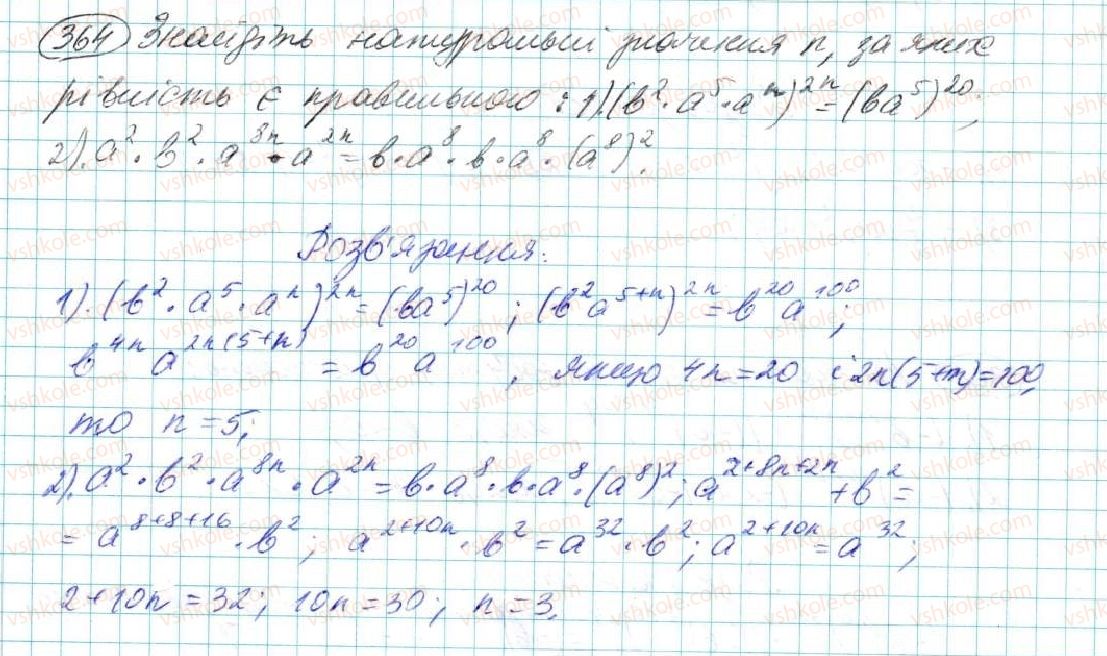 364 Знайдіть натуральні значення n, за яких
рівність є правильною: 1).(b²·a⁵·aⁿ)²ⁿ=(ba⁵)²⁰;
2).a²·b²·a⁸ⁿ·a²ⁿ=b·a⁸·b·a⁸·(a⁸)².
Розв'язання:
1).(b²·a⁵·aⁿ)²ⁿ=(ba⁵)²⁰; (b²a⁵⁺ⁿ)²ⁿ=b²⁰a¹⁰⁰;
b⁴ⁿa²ⁿ⁽⁵⁺ⁿ⁾=b²⁰a¹⁰⁰, якщо 4n=20 і 2n(5+n)=100,
то n=5;
2).a²·b²·a⁸ⁿ·a²ⁿ=b·a⁸·b·a⁸·(a⁸)²; a²⁺⁸ⁿ⁺²ⁿ+b²=
=a⁸⁺⁸⁺¹⁶·b²; a²⁺¹⁰ⁿ·b²=a³²·b²; a²⁺¹⁰ⁿ=a³²;
2+10n=32; 10n=30; n=3.